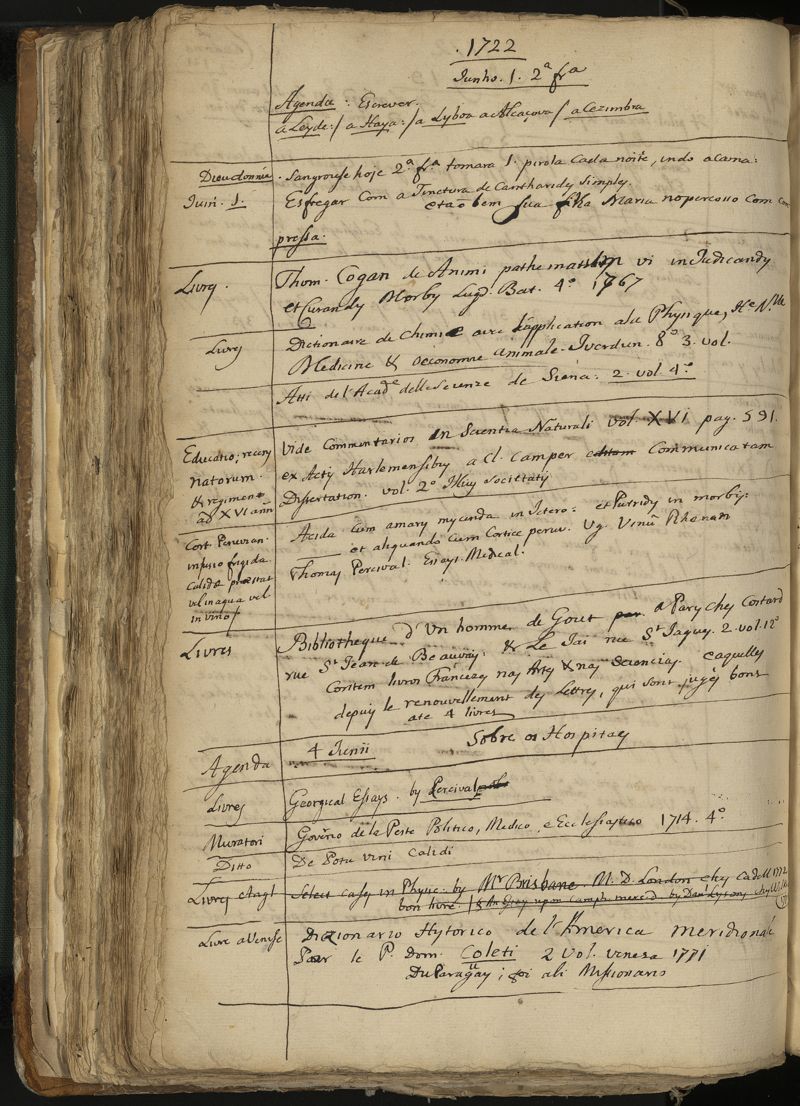 1722
Junho. 1. 2ª frª
Agenda: Escrever.
a Leyde: / a Haya: / a Lyboa a Alcaçova / a Cezimbra
Dieudonnée
Juin. 1.
Sangrouse hoje 2ª. frª. tomara 1. pirola cada noite, indo a cama:
Esfregar com a Tinctura de Cantharidy Simples.
e taõ bem sua filha Maria no percosso com com
pressa.
Livrꝯ.
Thom. Cogan de Animi pathematum vi in Iudicandy
et curandy Morby Lugd. Bat. 4º 1767
Livres
Dictionaire de Chimie avec l'application a la Physique, He N.lle
Medicine & oeconomie animale. Iverdun. 8º 3. vol.
Atti de l'Acadᵉ delle Scienze de Siena: 2. vol. 4º
Educatio; recens
natorum.
& regimen
ad XVI añ
Vide Commentarios In Scientia Naturali vol. XVI pag. 591.
ex Actꝯ Harlemensibꝯ a Cl. Camper Communicatam
Dissertation. vol. 2º Societatis
Cort. Peruvian.
infusio frigida.
calidæ præstat
vel in aqua vel
in vino /
Acida cum amarꝯ in Ictero: et Putridꝯ in morbꝯ:
et aliquando cum Cortice peruv. Vg. Vinũ Rhenan
Thomas Percival. Essays Medical.
Livres
Bibliotheque d'Un homme de Gout a Parꝯ chez Costard
rue Sᵗ Jean de Beauvais: & Le Jai rue Sᵗ Jaques. 2. vol. 12º
Contem livros Francezes nas Artes & nas Sciencias. e aquelles
depuis le renouvellement des Lettres, qui sont jugés bons
ate 4 livres
Agenda
4 Junii Sobre os Hospitaes
Livres
Georgical Essays. by Percival
Muratori
Govérno de la Peste Politico, Medico, e Ecclesiastico 1714. 4º.
Ditto
De Potu vini calidi
Livres Angl
Select cases in Physic: by Mʳ Brisbane. M. D. London chez Cadell 1772
bon livre. / & An Essay upon camph. merc.d by Dan Lysons
Livre a Venise
Dizionario Hystórico de l'America meridional
Par le P. Dom. Coleti 2 Vol. venesa 1771
Du Paraguay; foi ali Missonario